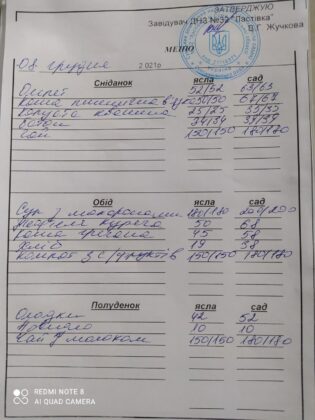 ЗАТВЕРДЖУЮ
Завідувач ДНЗ №32 "Ластівка"
В.Г. Жучкова
МЕНЮ
08 грудня 2021р
Сніданок ясла сад
Омлет 52/52 63/63
Каша пшенична в'яз 50/50 67/67
Капуста квашена 25/25 35/35
34/34 39/39
Чай 150/150 180/180
Обід ясла сад
Суп з макаронами 180/180 200/200
курача 50 68
Каша гречана 45 58
Хліб 19 38
Компот з с/фруктів 150/150 180/180
Полуденок ясла сад
Оладки 42 52
Повидло 10 10
Чай з молоком 150/150 180/180
REDMI NOTE 8
AI QUAD CAMERA